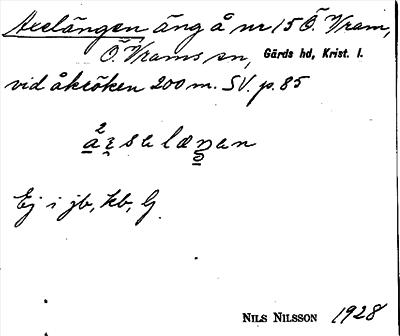 Axelängen äng å nr 15 Ö. Vram,
Ö. Vrams sn, Gärds hd, Krist. l.
vid åkröken 200 m. SV. p. 85
Ej i jb, kb, G.
NILS NILSSON 1928